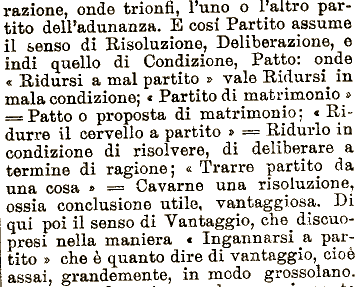 razione, onde trionfi, l'uno o l'altro par-
tito dell'adunanza. E cosí Partito assume
il senso di Risoluzione, Deliberazione, e
indi quello di Condizione, Patto: onde
« Ridursi a mal partito » vale Ridursi in
mala condizione; « Partito di matrimonio »
= Patto o proposta di matrimonio; « Ri-
durre il cervello a partito » = Ridurlo in
condizione di risolvere, di deliberare a
termine di ragione; « Trarre partito da
una cosa » = Cavarne una risoluzione,
ossia conclusione utile, vantaggiosa. Di
qui poi il senso di Vantaggio, che discuo-
presi nella maniera « Ingannarsi a par-
tito » che è quanto dire di vantaggio, cioè
assai, grandemente, in modo grossolano.